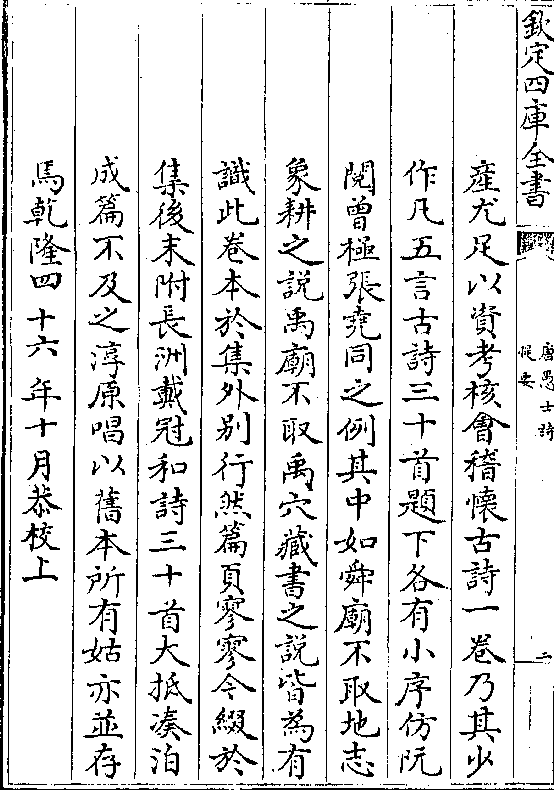 欽定四庫全書
唐愚士詩
提要
二
產尤足以資考核會稽懷古詩一卷乃其少
作凡五言古詩三十首題下各有小序仿阮
閱曾極張堯同之例其中如舜廟不取地志
象耕之說禹廟不取禹穴藏書之說皆為有
識此卷本於集外别行然篇頁寥寥今綴於
集後末附長洲戴冠和詩三十首大抵湊泊
成篇不及之淳原唱以舊本所有姑亦並存
焉乾隆四十六年十月恭校上